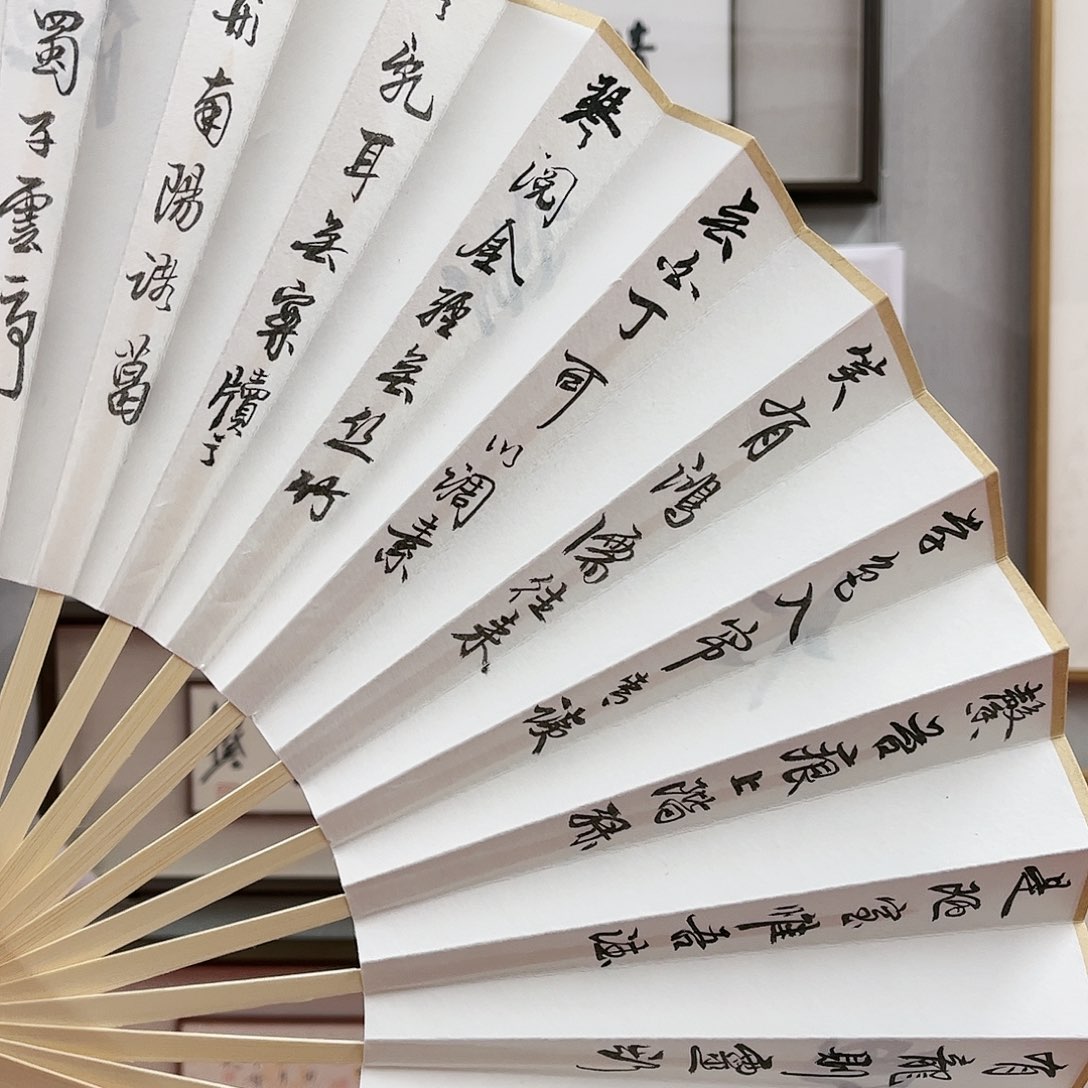 有龍則靈斯
是陋室惟吾德
馨苔痕上階綠
草色入帘青談
笑有鴻儒往来
無白丁可以調素
琴閲金經無丝竹
之乱耳無案牘之
形南陽諸葛
蜀子雲亭